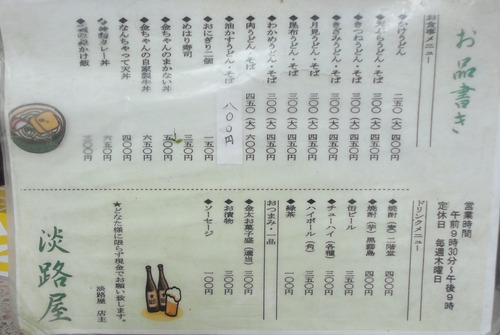 お品書き
お食事メニュー
◆かけうどん・そば 二五〇(大)四〇〇円
うどん・そば 三〇〇(大)
◆きつねうどん・そば 三〇〇(大)
◆きざみうどん・そば 三〇〇(大)
◆月見うどん・そば 三〇〇(大)
◆昆布うどん・そば 三〇〇(大)
◆わかめうどん・そば 三〇〇(大)
◆肉うどん・そば 四五〇(大)六〇〇円
◆油かすうどん・そば 八〇〇円
◆おにぎり二個 一五〇円
◆めはり寿司 三五〇円
◆金ちゃんのまかない丼
◆金ちゃんの自家製牛丼 六五〇円
◆なんちゃって天丼 四〇〇円
カレー丼 六五〇円
かけ飯 三〇〇円
営業時間
午前9時30分～午後9時
定休日 毎週木曜日
ドリンクメニュー
◆焼酎(麦)二階堂 四〇〇円
◆焼酎(芋)黒霧島 四〇〇円
◆缶ビール 三五〇円
◆チューハイ(各種) 三〇〇円
◆ハイボール(角) 三〇〇円
◆緑茶 一〇〇円
おつまみ・一品
◆金太お菓子盛(適当) 三〇〇円
◆お漬物 三〇〇円
◆ソーセージ 一〇〇円
★どなた様に限らず現金でお願い致します。
淡路屋 店主
淡路屋